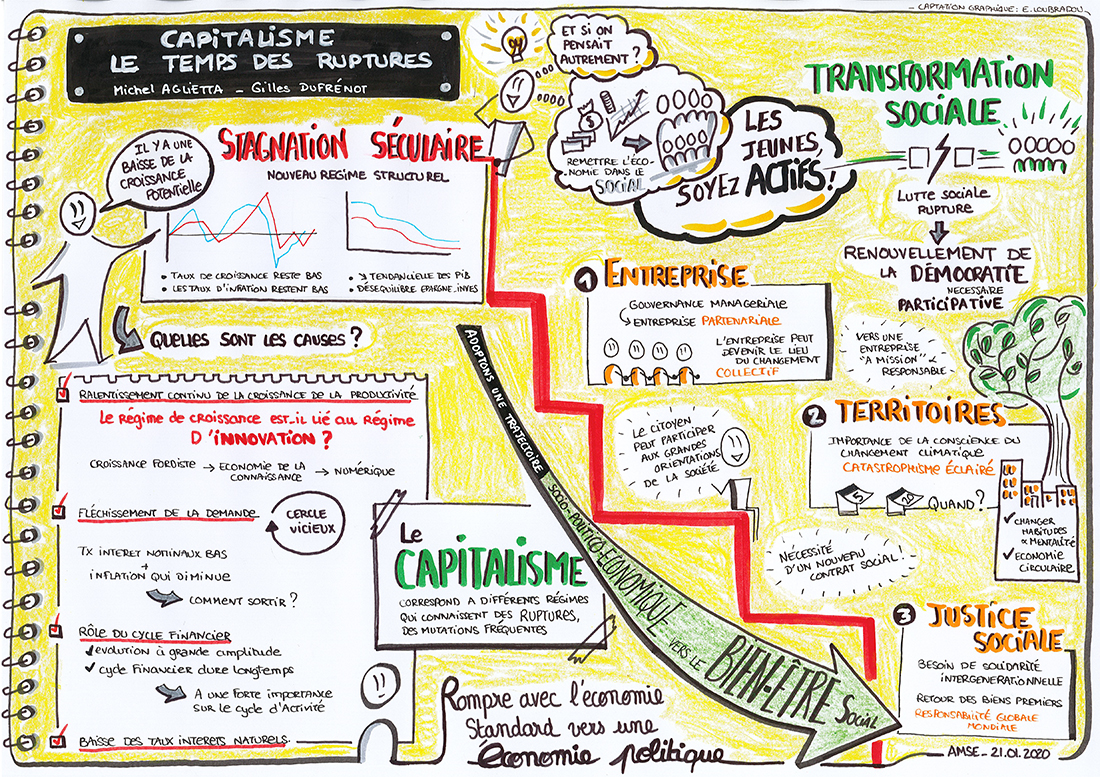 - CAPTATION GRAPHIQUE : E. LOUBRADOU -
CAPITALISME
LE TEMPS DES RUPTURES
Michel AGLIETTA - Gilles DUFRÉNOT
ET SI ON
PENSAIT
AUTREMENT ?
REMETTRE L'ÉCO-
NOMIE DANS LE
SOCIAL
LES
JEUNES,
SOYEZ ACTIFS !
TRANSFORMATION
SOCIALE
LUTTE SOCIALE
RUPTURE
RENOUVELLEMENT DE
LA DÉMOCRATIE
NECESSAIRE
PARTICIPATIVE
IL Y A UNE
BAISSE DE LA
CROISSANCE
POTENTIELLE
STAGNATION SÉCULAIRE
NOUVEAU REGIME STRUCTUREL
• TAUX DE CROISSANCE RESTE BAS
• LES TAUX D'INFLATION RESTENT BAS
• ↘ TENDANCIELLE DES PIB
• DÉSEQUILIBRE EPARGNE-INVES
QUELLES SONT LES CAUSES ?
RALENTISSEMENT CONTINU DE LA CROISSANCE DE LA PRODUCTIVITÉ
Le Régime de croissance est-il lié au Régime
D'INNOVATION ?
CROISSANCE FORDISTE → ECONOMIE DE LA → NUMÉRIQUE
CONNAISSANCE
FLÉCHISSEMENT DE LA DEMANDE
CERCLE
VICIEUX
TX INTERET NOMINAUX BAS
+
INFLATION QUI DIMINUE
COMMENT SORTIR ?
RÔLE DU CYCLE FINANCIER
évolution à grande amplitude
cycle financier dure longtemps
A UNE FORTE IMPORTANCE
SUR LE CYCLE D'ACTIVITÉ
BAISSE DES TAUX INTERETS NATURELS
Le
CAPITALISME
CORRESPOND A DIFFÉRENTS RÉGIMES
QUI CONNAISSENT DES RUPTURES,
DES MUTATIONS FRÉQUENTES
ADOPTONS UNE TRAJECTOIRE SOCIO-POLITICO-ECONOMIQUE VERS LE BIEN-ÊTRE SOCIAL
Rompre avec l'économie
Standard vers une
économie politique
1 ENTREPRISE
GOUVERNANCE MANAGERIALE
ENTREPRISE PARTENARIALE
L'ENTREPRISE PEUT
DEVENIR LE LIEU
DU CHANGEMENT
COLLECTIF
VERS UNE
ENTREPRISE
"A MISSION"
RESPONSABLE
LE CITOYEN
PEUT PARTICIPER
AUX GRANDES
ORIENTATIONS
DE LA SOCIÉTÉ
2 TERRITOIRES
IMPORTANCE DE LA CONSCIENCE DU
CHANGEMENT CLIMATIQUE
CATASTROPHISME ÉCLAIRÉ
5 20 QUAND ?
CHANGER
HABITUDES
MENTALITÉ
ECONOMIE
CIRCULAIRE
NECESSITÉ
D'UN NOUVEAU
CONTRAT SOCIAL !
3 JUSTICE
SOCIALE
BESOIN DE SOLIDARITÉ
INTERGENERATIONNELLE
RETOUR DES BIENS PREMIERS
RESPONSABILITÉ GLOBALE
MONDIALE
AMSE - 21.01.2020